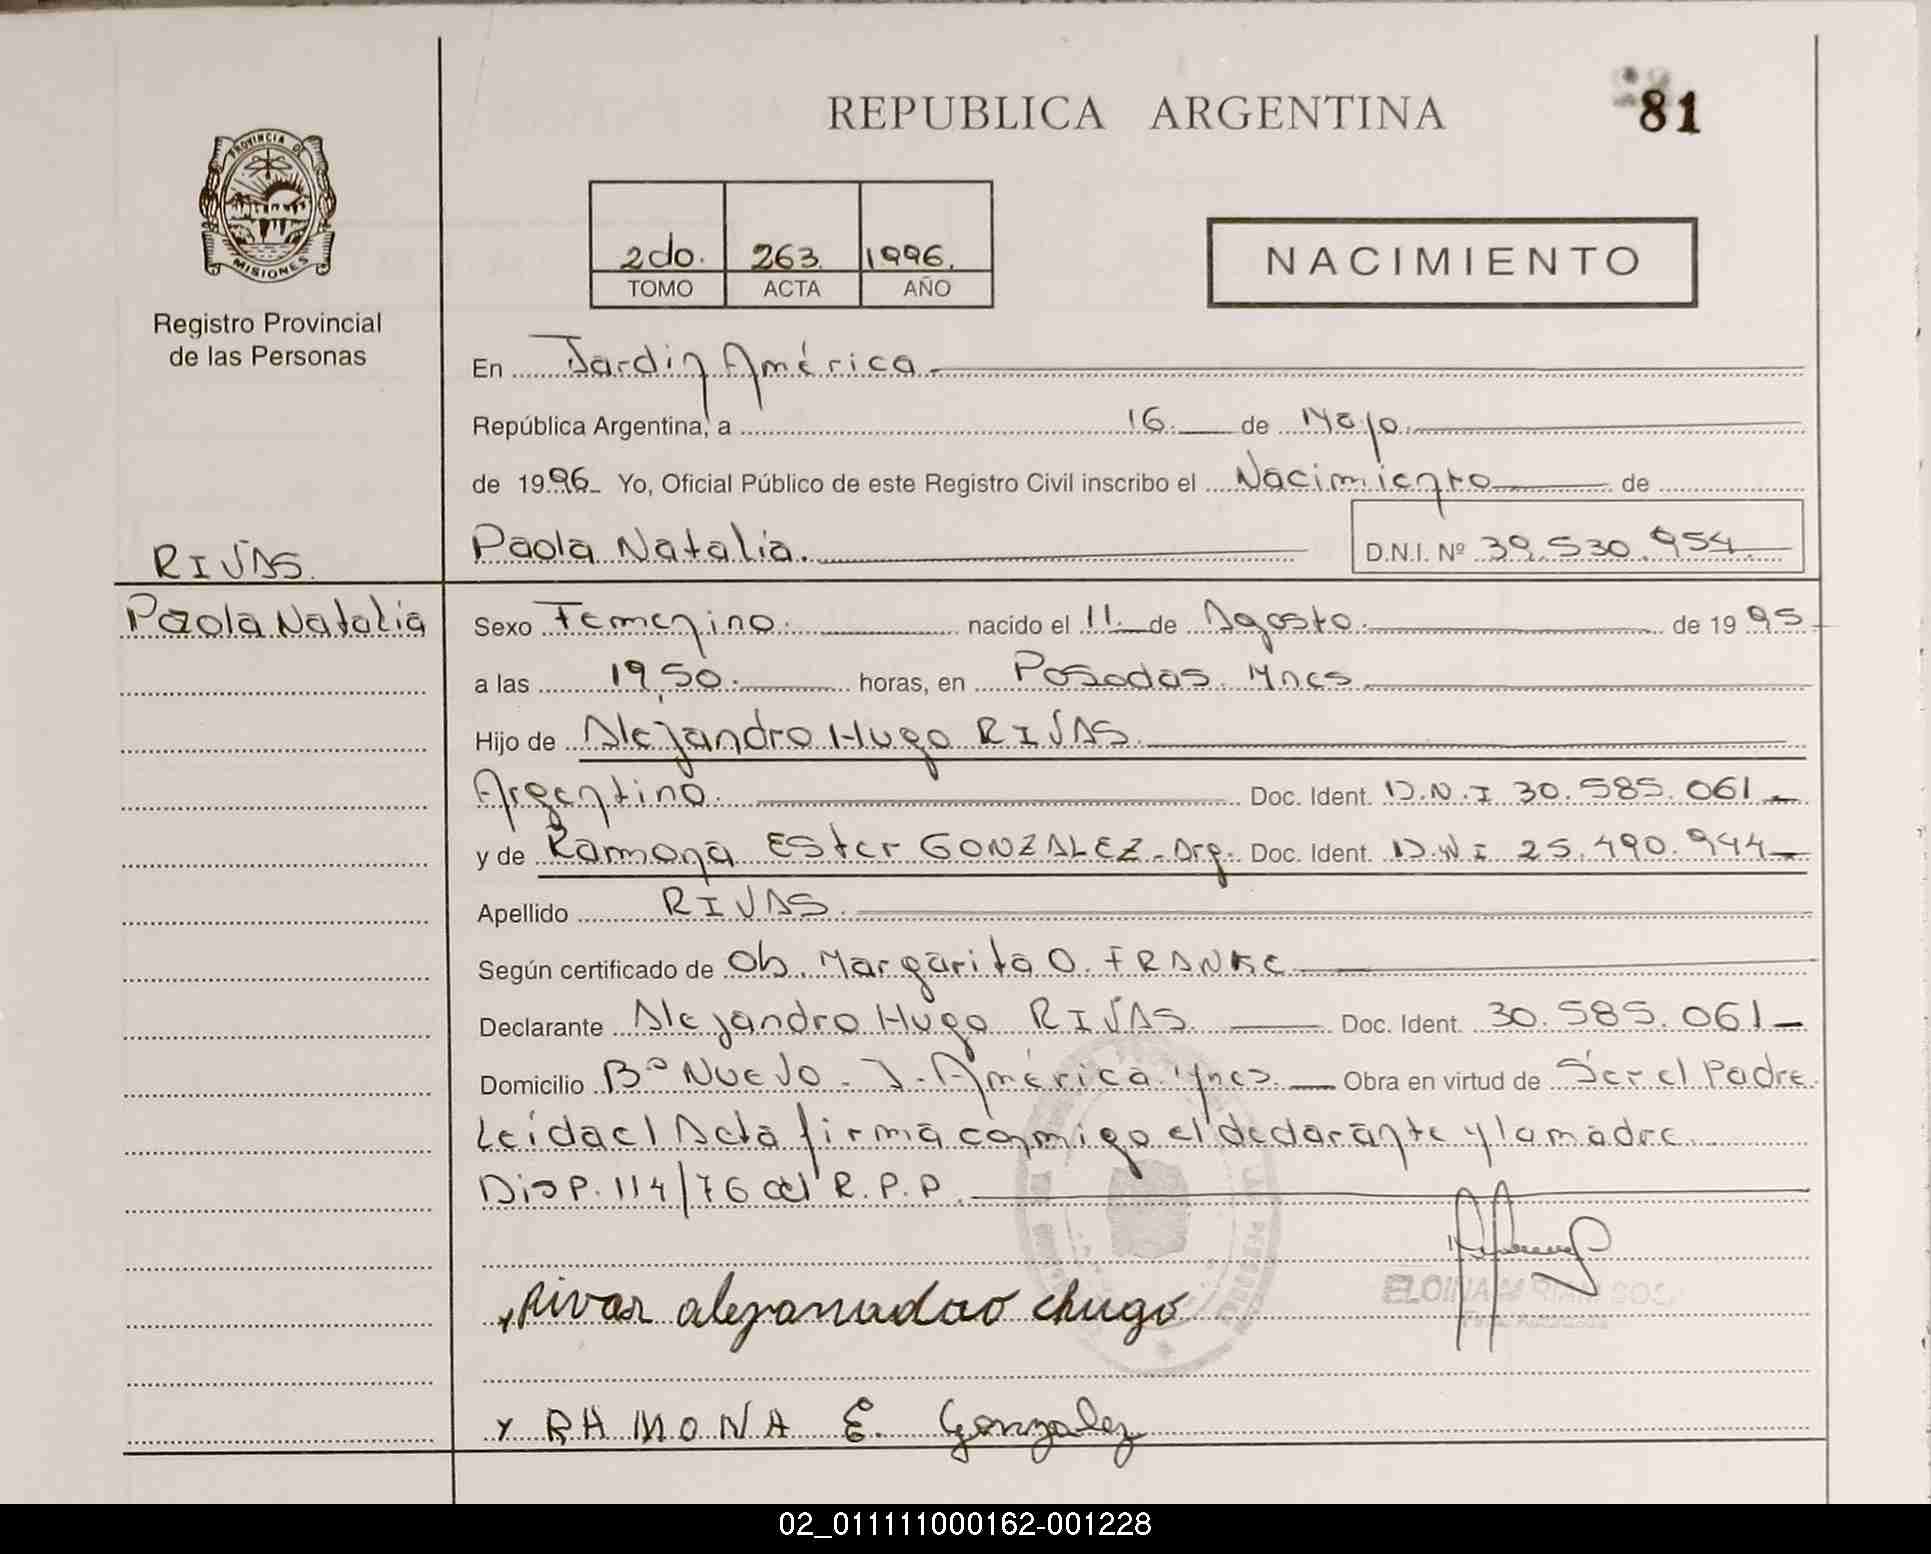 REPUBLICA ARGENTINA
81
PROVINCIA DE
MISIONES
Registro Provincial
de las Personas
2do. 263. 1996.
TOMO ACTA AÑO
NACIMIENTO
En Jardin América.
República Argentina, a 16. de Mayo.
de 1996 Yo, Oficial Público de este Registro Civil inscribo el Nacimiento de
Paola Natalia. D.N.I. Nº 39.530.954.
RIVAS.
Paola Natalia
Sexo Femenino. nacido el 11. de Agosto. de 1995
a las 19,50. horas, en Posadas. Mnes
Hijo de Alejandro Hugo RIVAS.
Argentino. Doc. Ident. D.N.I 30.585.061
y de Ramona Ester GONZALEZ - Arg. Doc. Ident. D.N.I 25.490.944
Apellido RIVAS.
Según certificado de Ob. Margarita O. FRANKE
Declarante Alejandro Hugo RIVAS. Doc. Ident. 30.585.061
Domicilio Bº Nuevo - J. América. Mnes. Obra en virtud de Ser el Padre.
Leida el Acta firma conmigo el declarante y la madre.
Disp. 114/76 del R.P.P.
ELOINA
Rivas alejanadao chugo
x RAMONA E. Gonzalez
02_011111000162-001228